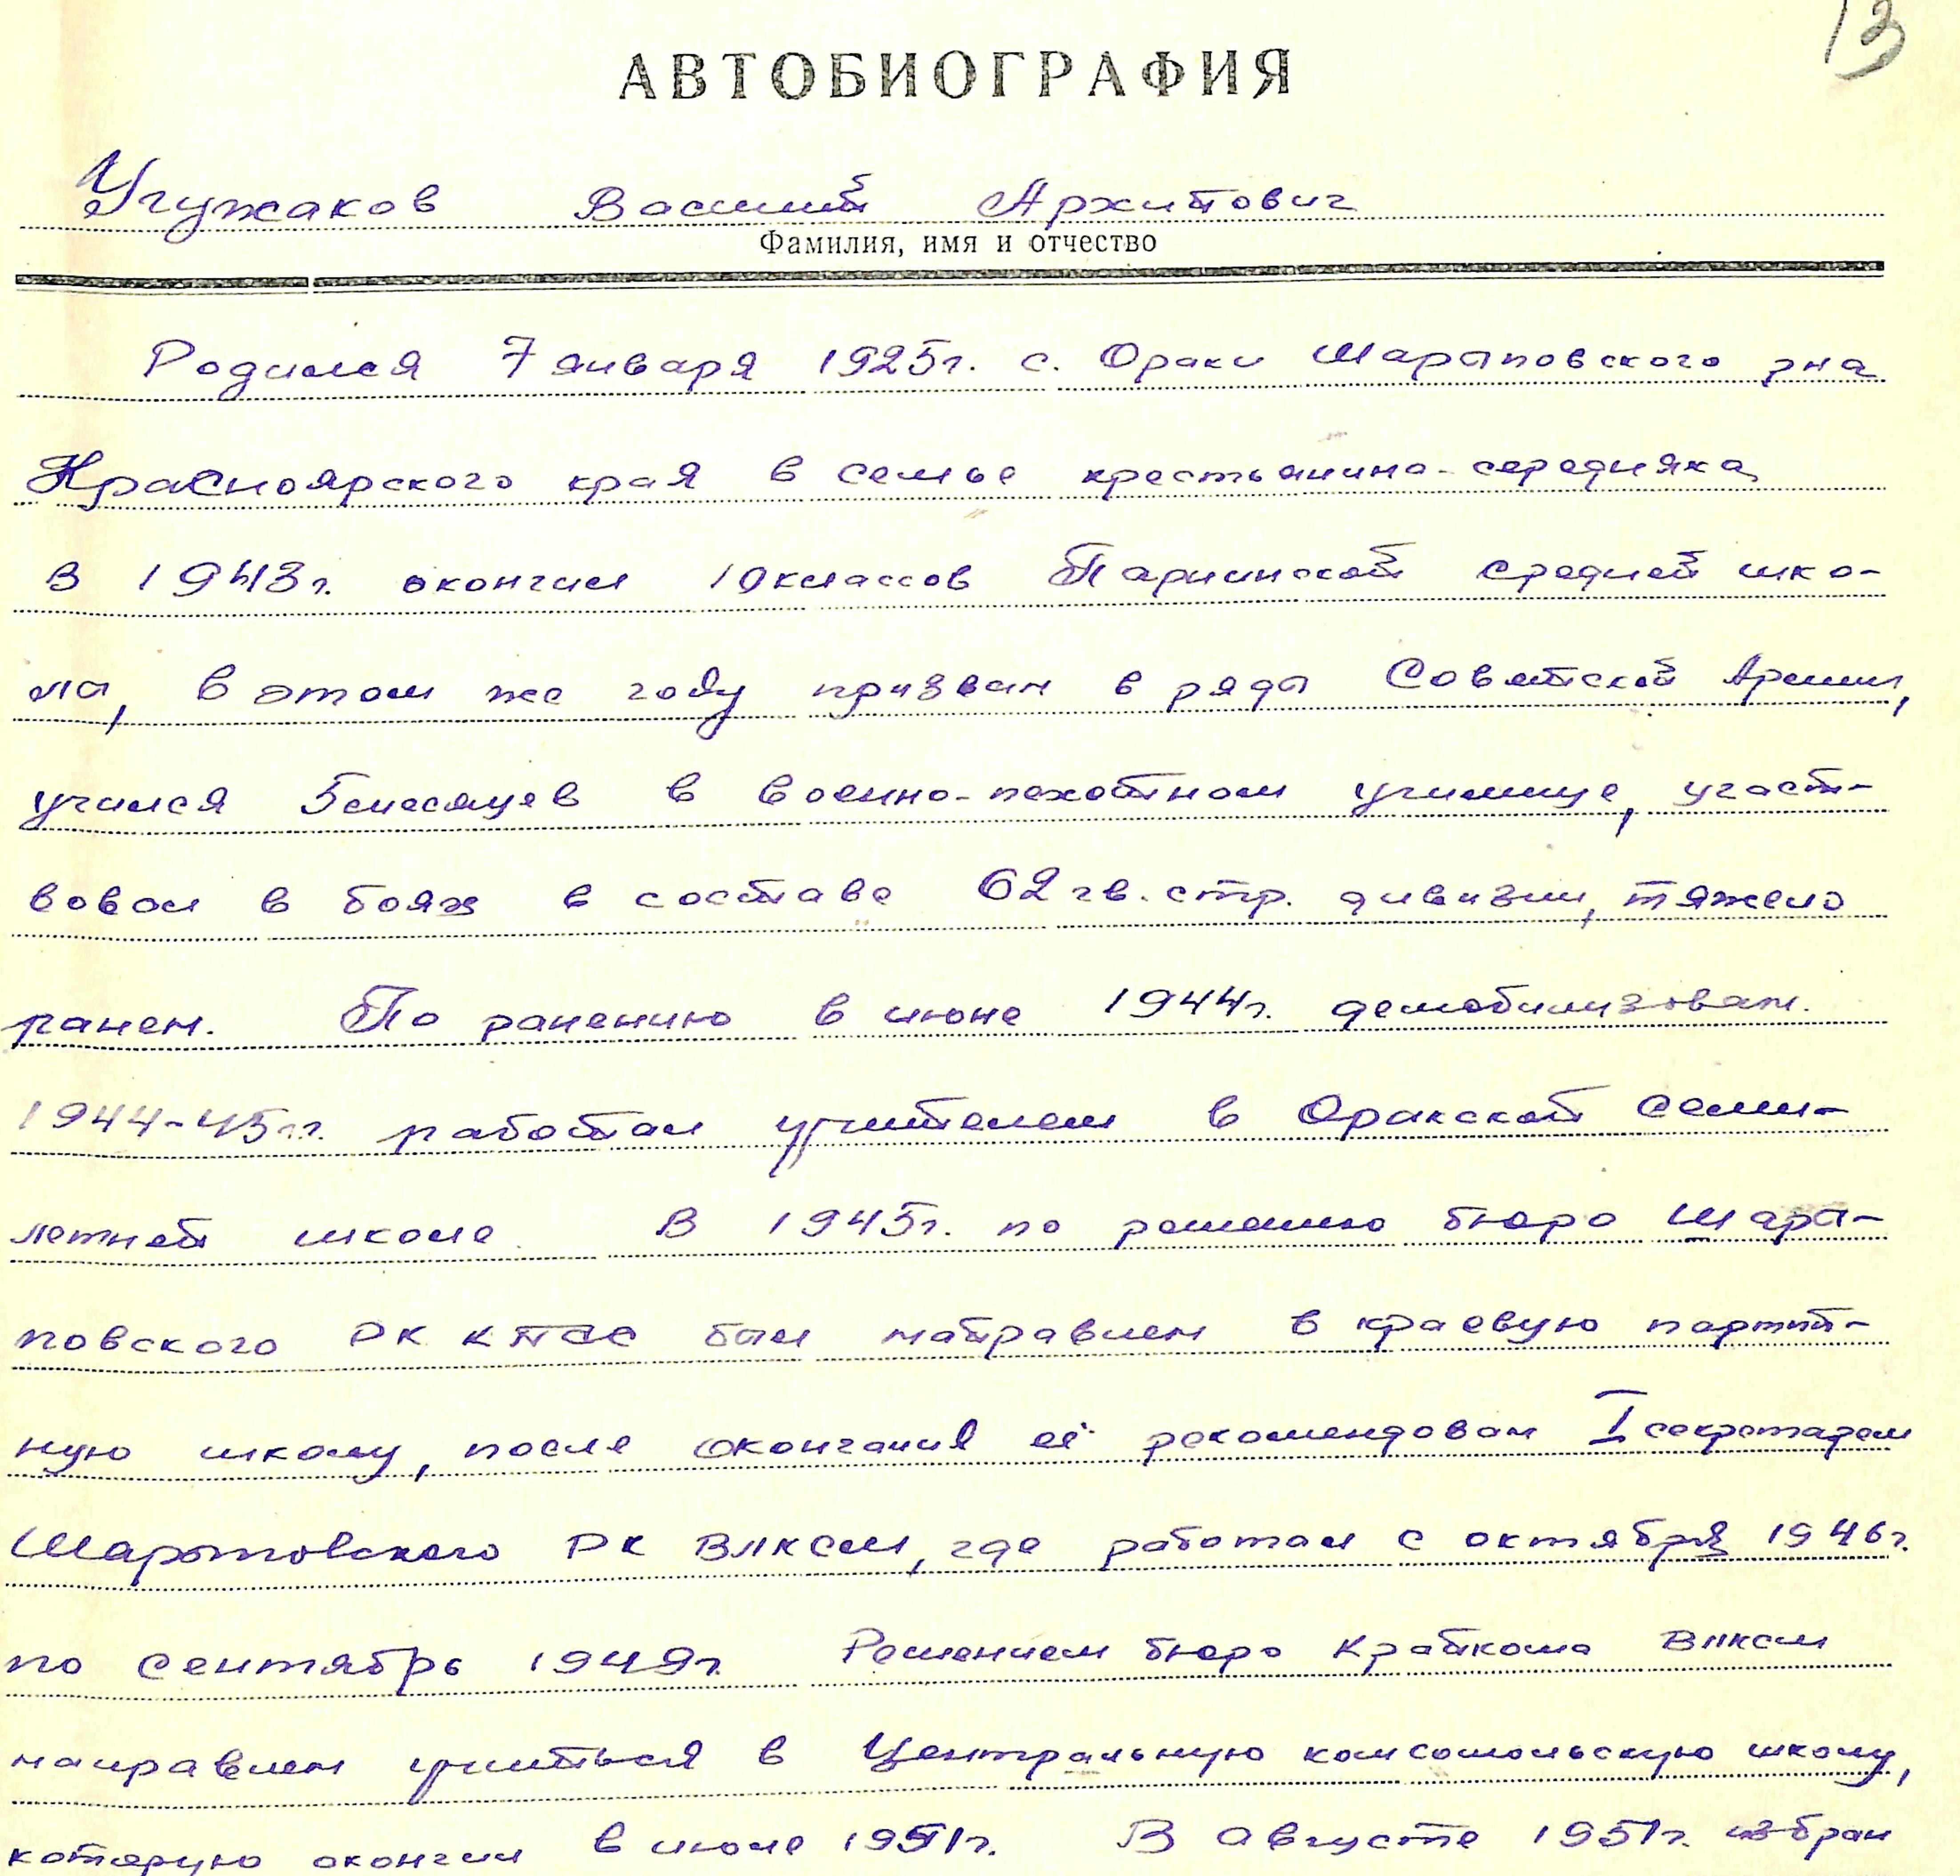 13
АВТОБИОГРАФИЯ
Угужаков Василий Архипович
Фамилия, имя и отчество
Родился 7 января 1925г. с. Ораки Шарыповского рна
Красноярского края в семье крестьянина-середняка
В 1943г. окончил 10 классов Парнинской средней шко-
лы, в этом же году призван в ряды Советской Армии,
учился 5 месяцев в военно-пехотном училище, участ-
вовал в боях в составе 62 гв. стр. дивизии, тяжело
ранен. По ранению в июне 1944г. демобилизован.
1944-45г.г. работал учителем в Оракской семи-
летней школе. В 1945г. по решению бюро Шары-
повского РК КПСС был направлен в краевую партий-
ную школу, после окончания её рекомендован I секретарем
Шарыповского РК ВЛКСМ, где работал с октября 1946г.
по сентябрь 1949г. Решением бюро Крайкома ВЛКСМ
направлен учиться в Центральную комсомольскую школу,
которую окончил в июле 1951г. В августе 1951г. избран